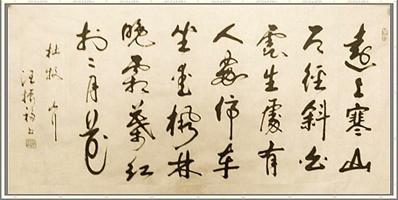 遠上寒山
石徑斜白
雲生處有
人家停車
坐愛楓林
晚霜葉紅
於二月花
杜牧 山行